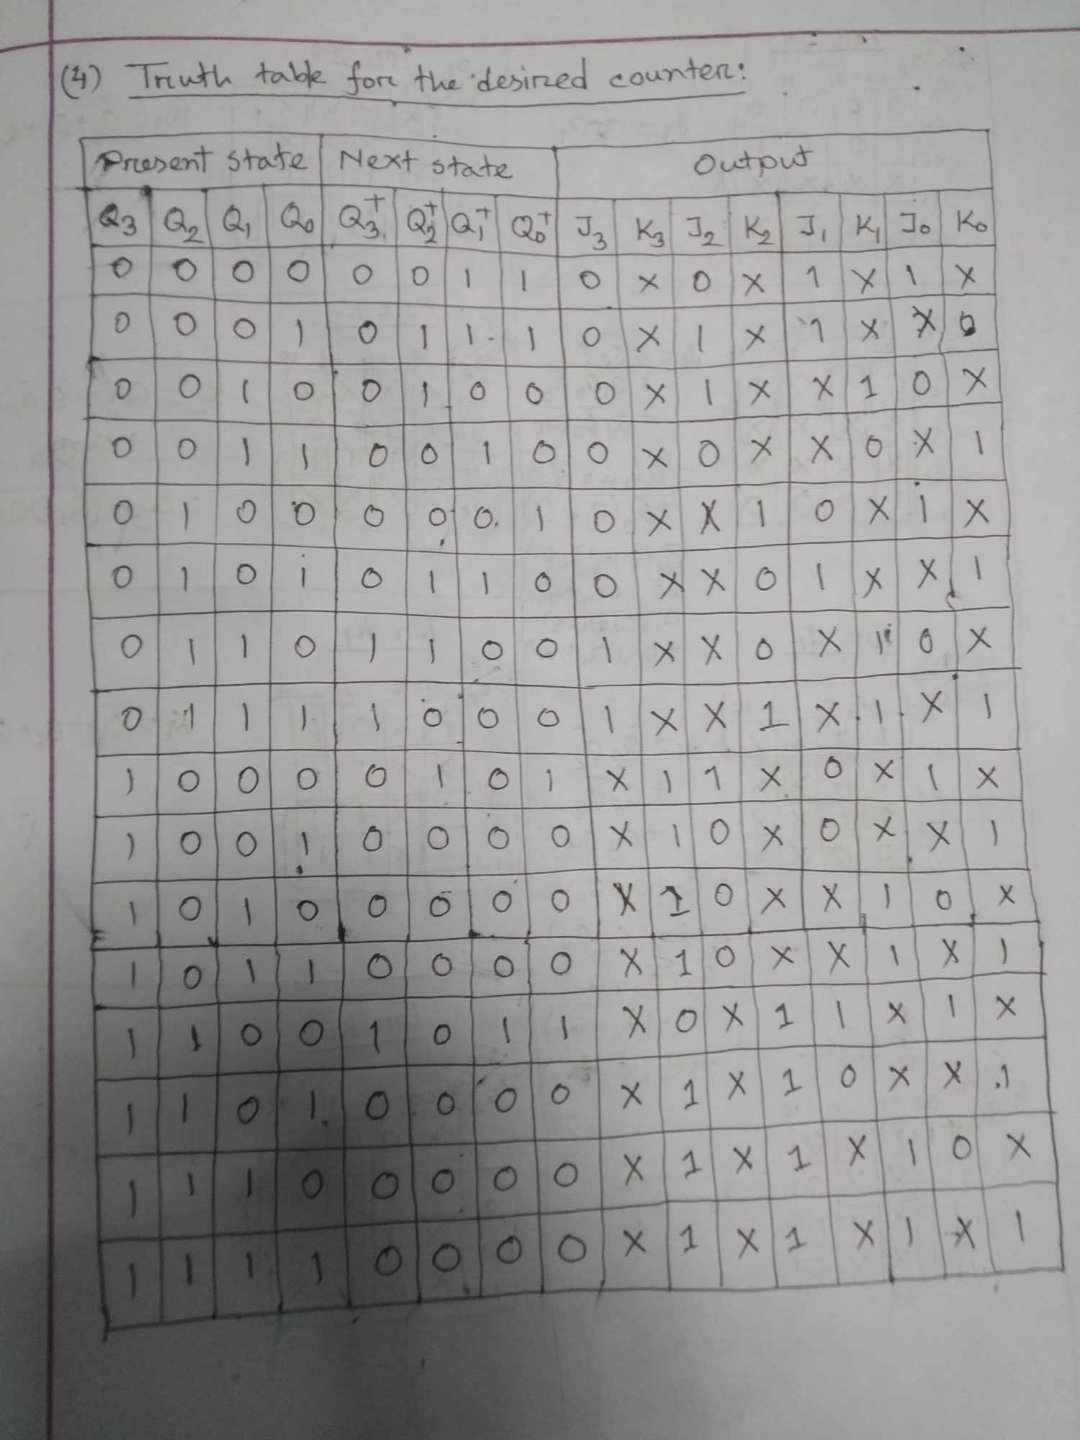 (4) Truth table for the desired counter:
Present state Next state Output
Q3 Q2 Q1 Q0 Q3+ Q2+ Q1+ Q0+ J3 K3 J2 K2 J1 K1 J0 K0
0 0 0 0 0 0 1 1 0 X 0 X 1 X 1 X
0 0 0 1 0 1 1 1 0 X 1 X 1 X X 0
0 0 1 0 0 1 0 0 0 X 1 X X 1 0 X
0 0 1 1 0 0 1 0 0 X 0 X X 0 X 1
0 1 0 0 0 0 0 1 0 X X 1 0 X 1 X
0 1 0 1 0 1 1 0 0 X X 0 1 X X 1
0 1 1 0 1 1 0 0 1 X X 0 X 1 0 X
0 1 1 1 1 0 0 0 1 X X 1 X 1 X 1
1 0 0 0 0 1 0 1 X 1 1 X 0 X 1 X
1 0 0 1 0 0 0 0 X 1 0 X 0 X X 1
1 0 1 0 0 0 0 0 X 1 0 X X 1 0 X
1 0 1 1 0 0 0 0 X 1 0 X X 1 X 1
1 1 0 0 1 0 1 1 X 0 X 1 1 X 1 X
1 1 0 1 0 0 0 0 X 1 X 1 0 X X 1
1 1 1 0 0 0 0 0 X 1 X 1 X 1 0 X
1 1 1 1 0 0 0 0 X 1 X 1 X 1 X 1